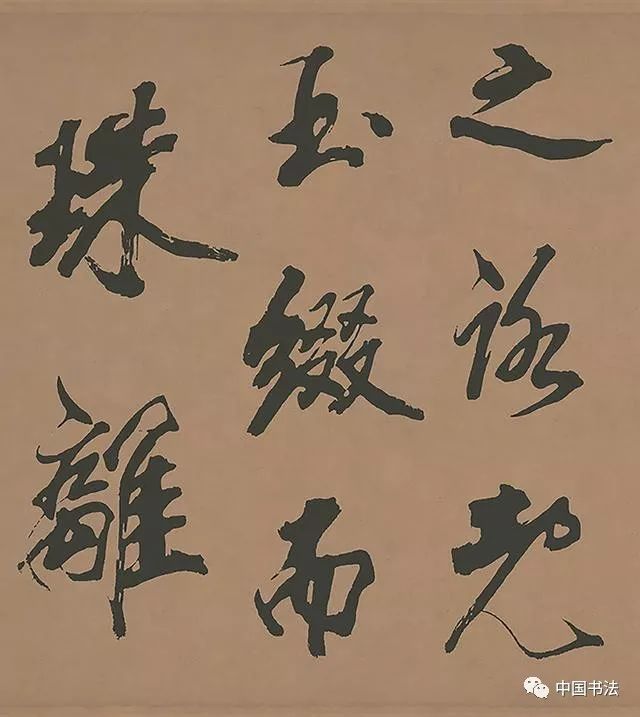 之詠
玉綴而
珠離
中国书法